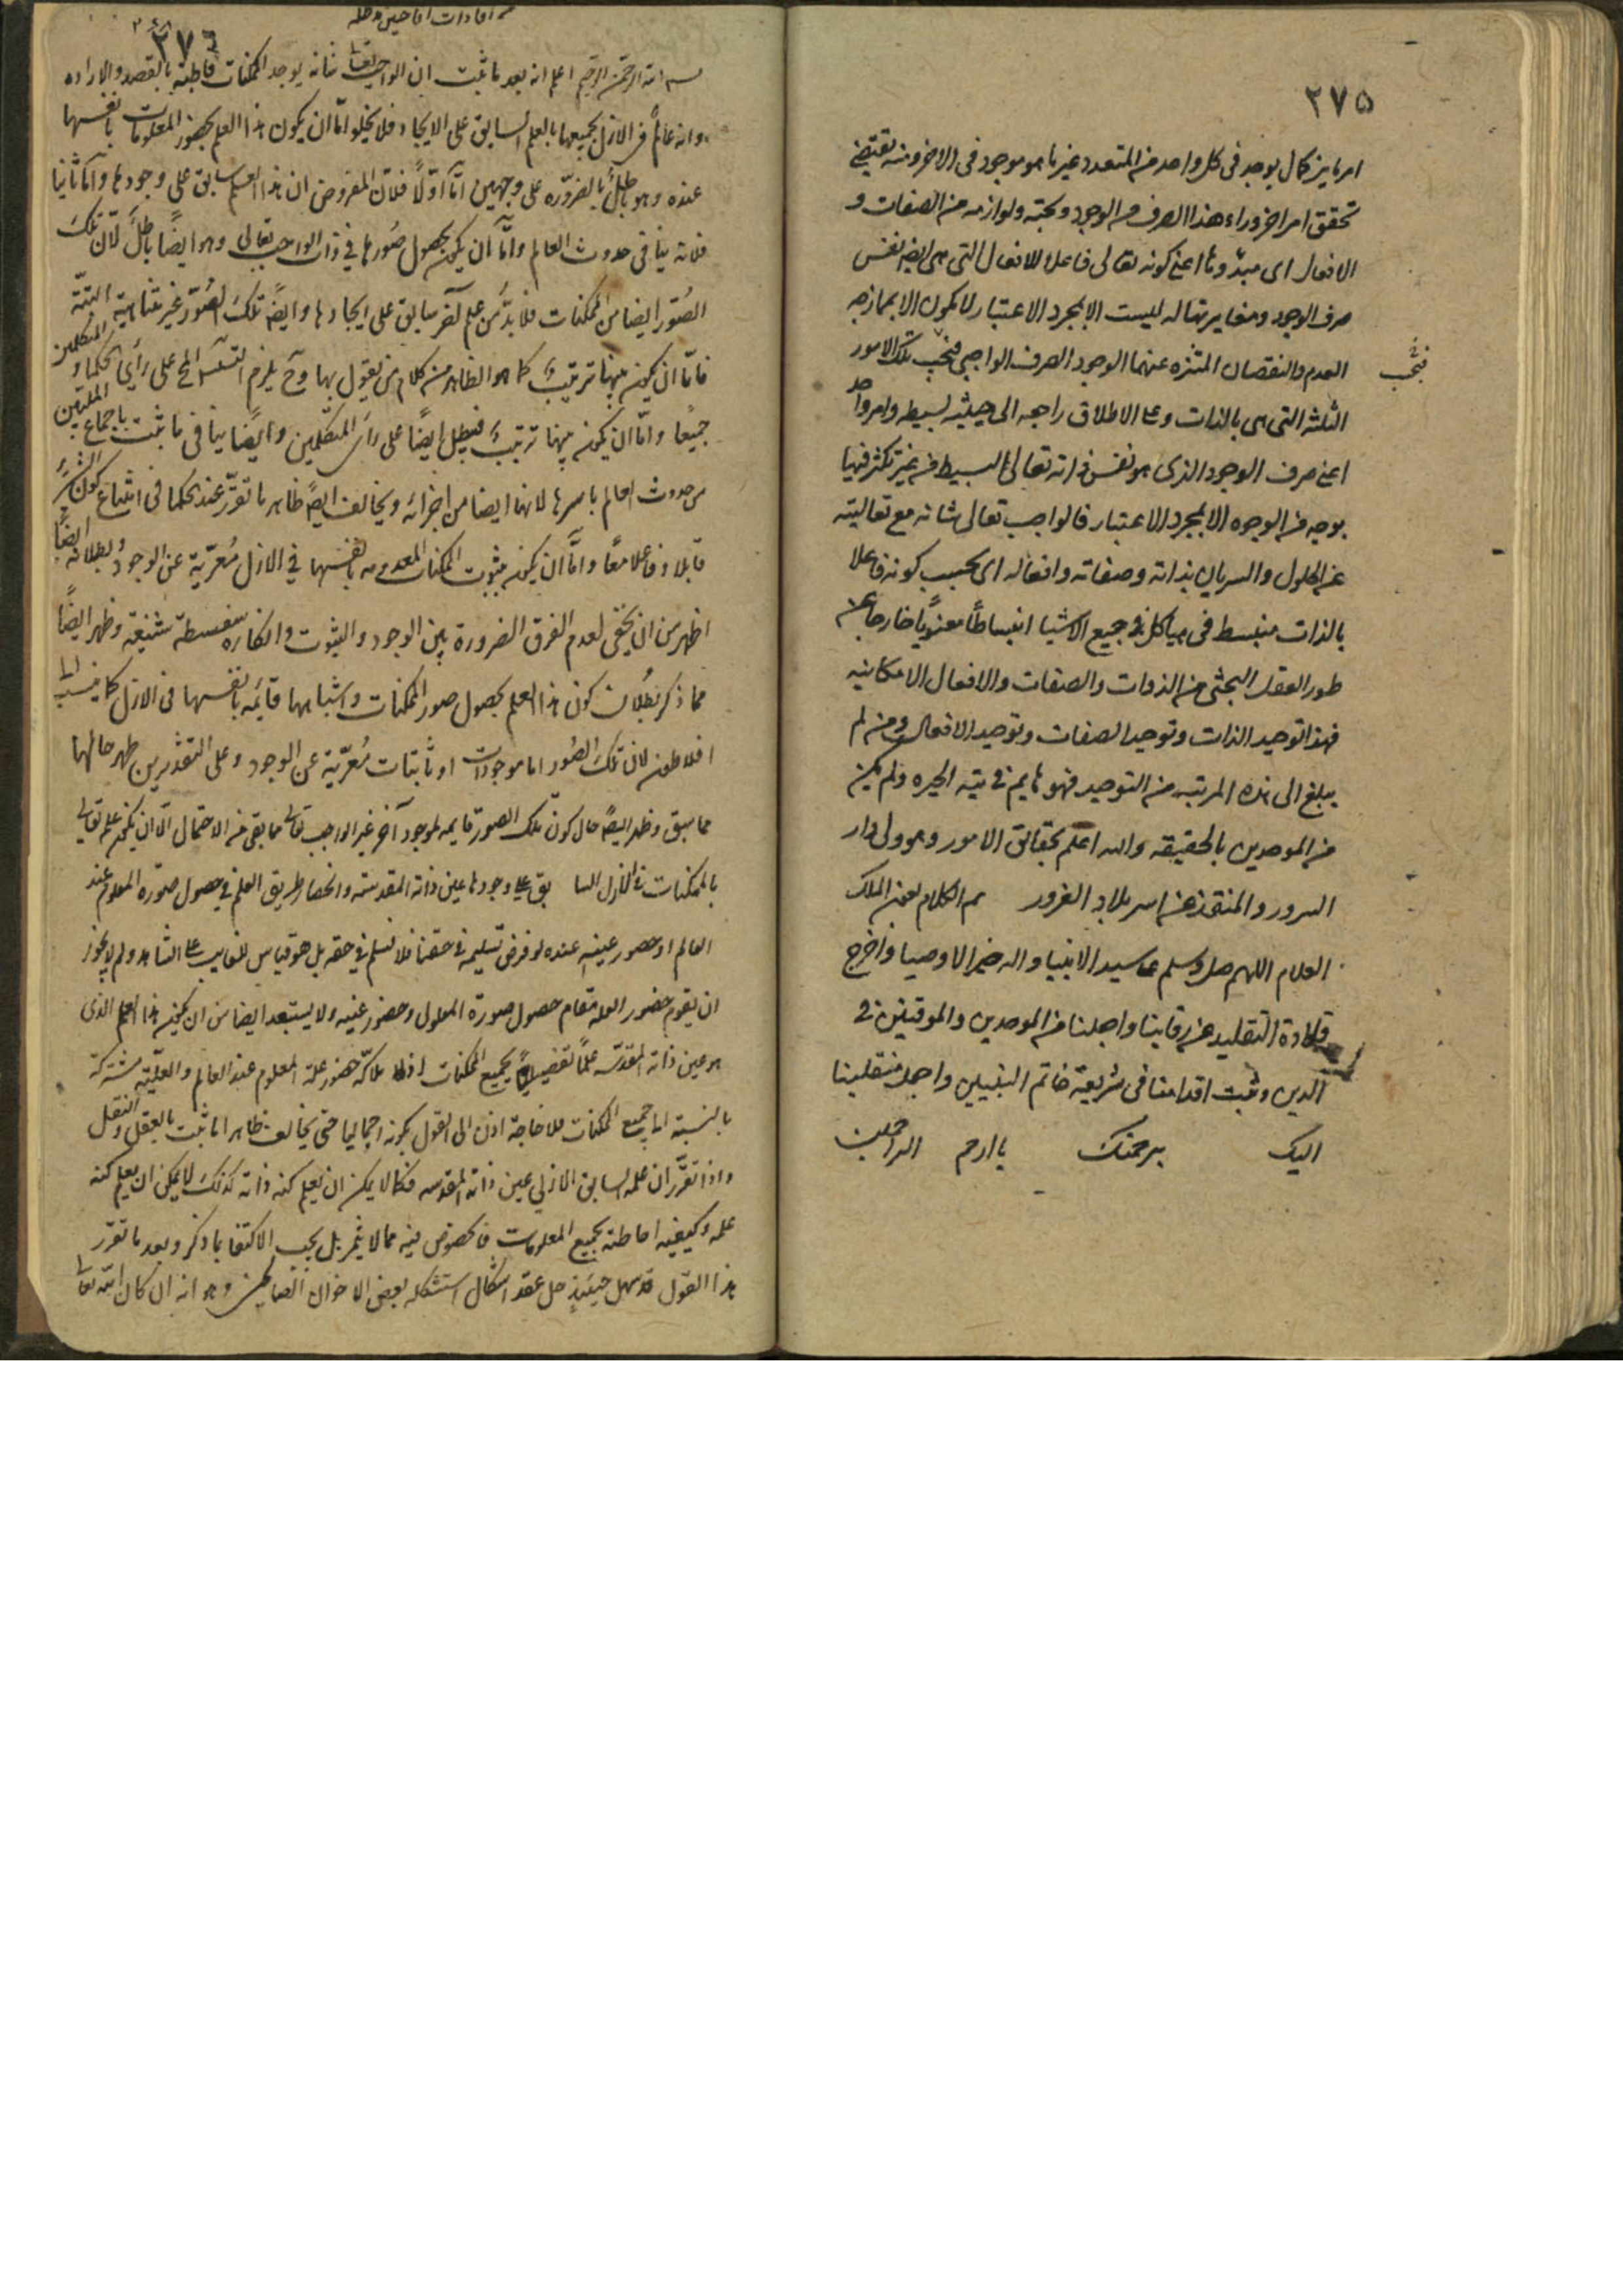 ۲۷۵
امر ما يز كمال يوجد فى كل واحد من المتعدد غير ما هو موجود فى الاخر ومنه تقتضى
تحقق امر اخر وراء هذا الصرف من الوجود وبحته ولوازمه من الصفات و
الافعال اى مبدؤها اعنى كونه تعالى فاعلا للافعال التى هى ايضا نفس
صرف الوجود ومغايرتها له ليست الا بمجرد الاعتبار لا يكون الا بمازجه
العدم والنقصان المتنزه عنهما الوجود الصرف الواجبى فبحسب تلك الامور
الثلثه التى هى بالذات وعلى الاطلاق راجعه الى حيثيه بسيطه وامر واحد
اعنى صرف الوجود الذى هو نفس ذاته تعالى البسيط من غير تكثر فيها
بوجه من الوجوه الا بمجرد الاعتبار فالواجب تعالى شانه مع تعاليته
عن الحلول والسريان بذاته وصفاته وافعاله اى بحسب كونه فاعلا
بالذات منبسط فى هياكل جميع الاشيا انبساطًا معنويًا خارجا عن
طور العقل البحثى من الذوات والصفات والافعال الامكانيه
فهذا توحيد الذات وتوحيد الصفات وتوحيد الافعال ومن لم
يبلغ الى هذه المرتبه من التوحيد فهو هايم فى تيه الحيره ولم يكن
من الموحدين بالحقيقه والله اعلم بحقائق الامور وهو ولى دار
السرور والمنقذ من اسر بلاد الغرور تم الكلام بعون الملك
العلام اللهم صل وسلم على سيد الانبيا واله خير الاوصيا واخرج
قلادة التقليد عن رقابنا واجعلنا من الموحدين والموقنين فى
الدين وثبت اقدامنا فى شريعة خاتم النبيين واجعل منقلبنا
اليك برحمتك يا ارحم الراحمين
من افادات اقا حسين مد ظله
۲۷۶
بسم الله الرحمن الرحيم اعلم انه بعد ما ثبت ان الواجب تعالى شانه يوجد الممكنات قاطبة بالقصد والاراده
وانه عالم فى الازل بجميعها بالعلم السابق على الايجاد فلا يخلو امّا ان يكون هذا العلم بحضور المعلومات بانفسها
عنده وهو باطل بالضروره على وجهين امّا اوّلًا فلانّ المفروض ان هذا العلم سابق على وجودها وامّا ثانيا
فلانه ينافى حدوث العالم وامّا ان يكون بحصول صُورها فى ذات الواجب تعالى وهو ايضًا باطل لانّ تلك
الصُّور ايضا من الممكنات فلا بدّ من علم آخر سابق على ايجادها وايضًا تلك الصُّور غير متناهية البتّة
فامّا ان يكون بينها ترتيب كما هو الظاهر من كلام من يقول بها وح يلزم التسلسل المح على رأى الحكماء و المتكلمين
جميعًا وامّا ان لا يكون بينها ترتيب فيبطل ايضًا على رأى المتكلّمين وايضًا ينافى ما ثبت باجماع المليين
من حدوث العالم باسرها لانها ايضا من اجزائه ويخالف ايضًا ظاهر ما تقرّر عند الحكما فى امتناع كون الشئ
قابلا وفاعلا معًا وامّا ان يكون بثبوت الممكنات المعدومه بانفسها فى الازل مُعرّية عن الوجود وبطلانه ايضًا
اظهر من ان يخفى لعدم الفرق الضرورة بين الوجود والثبوت وانكاره سفسطة شنيعة وظهر ايضًا
مما ذكر بُطلان كون هذا العلم بحصول صور الممكنات واشباهها قائمة بانفسها فى الازل كما ينسب الى
افلاطون لان تلك الصُّور اما موجودات او ثابتات مُعرّية عن الوجود وعلى التقديرين ظهر حالها
مما سبق وظهر ايضًا حال كون تلك الصور قايمه لموجود آخر غير الواجب تعالى فما بقى من الاحتمال الّا ان يكون علمه تعالى
بالممكنات فى الازل السا بق على وجودها عين ذاته المقدسة وانحصار طريق العلم فى حصول صورة المعلوم عند
العالم او حضور عينه عنده لو فرض تسليمه فى حقنا فلا نسلم فى حقه بل هو قياس للغايب على الشاهد ولم لا يجوز
ان يقوم حضور العله مقام حصول صورة المعلول وحضور عينه ولا يستبعد ايضا من ان يكون هذا العلم الذى
هو عين ذاته المقدّسه علمًا تفصيليًا بجميع الممكنات اذلا ملاكه حضور علة المعلوم عند العالم والعلّية مشتركة
بالنسبة الى جميع الممكنات فلا حاجة اذن الى القول بكونه اجماليا حتى يخالف ظاهر ما ثبت بالعقل والنقل
واذا تقرّر ان علمه السابق الازلى عين ذاته المقدسه فكما لا يمكن ان يعلم كنه ذاته كذلك لا يمكن ان يعلم كنه
علمه وكيفيه احاطته بجميع المعلومات فالخوض فيه مما لا يثمر بل يجب الاكتفا بما ذكر وبعد ما تقرر
هذا القول قد سهل حينئذ حل عقد اشكال استشكله بعض الاخوان الصالحين وهو انه ان كان الله تعالى